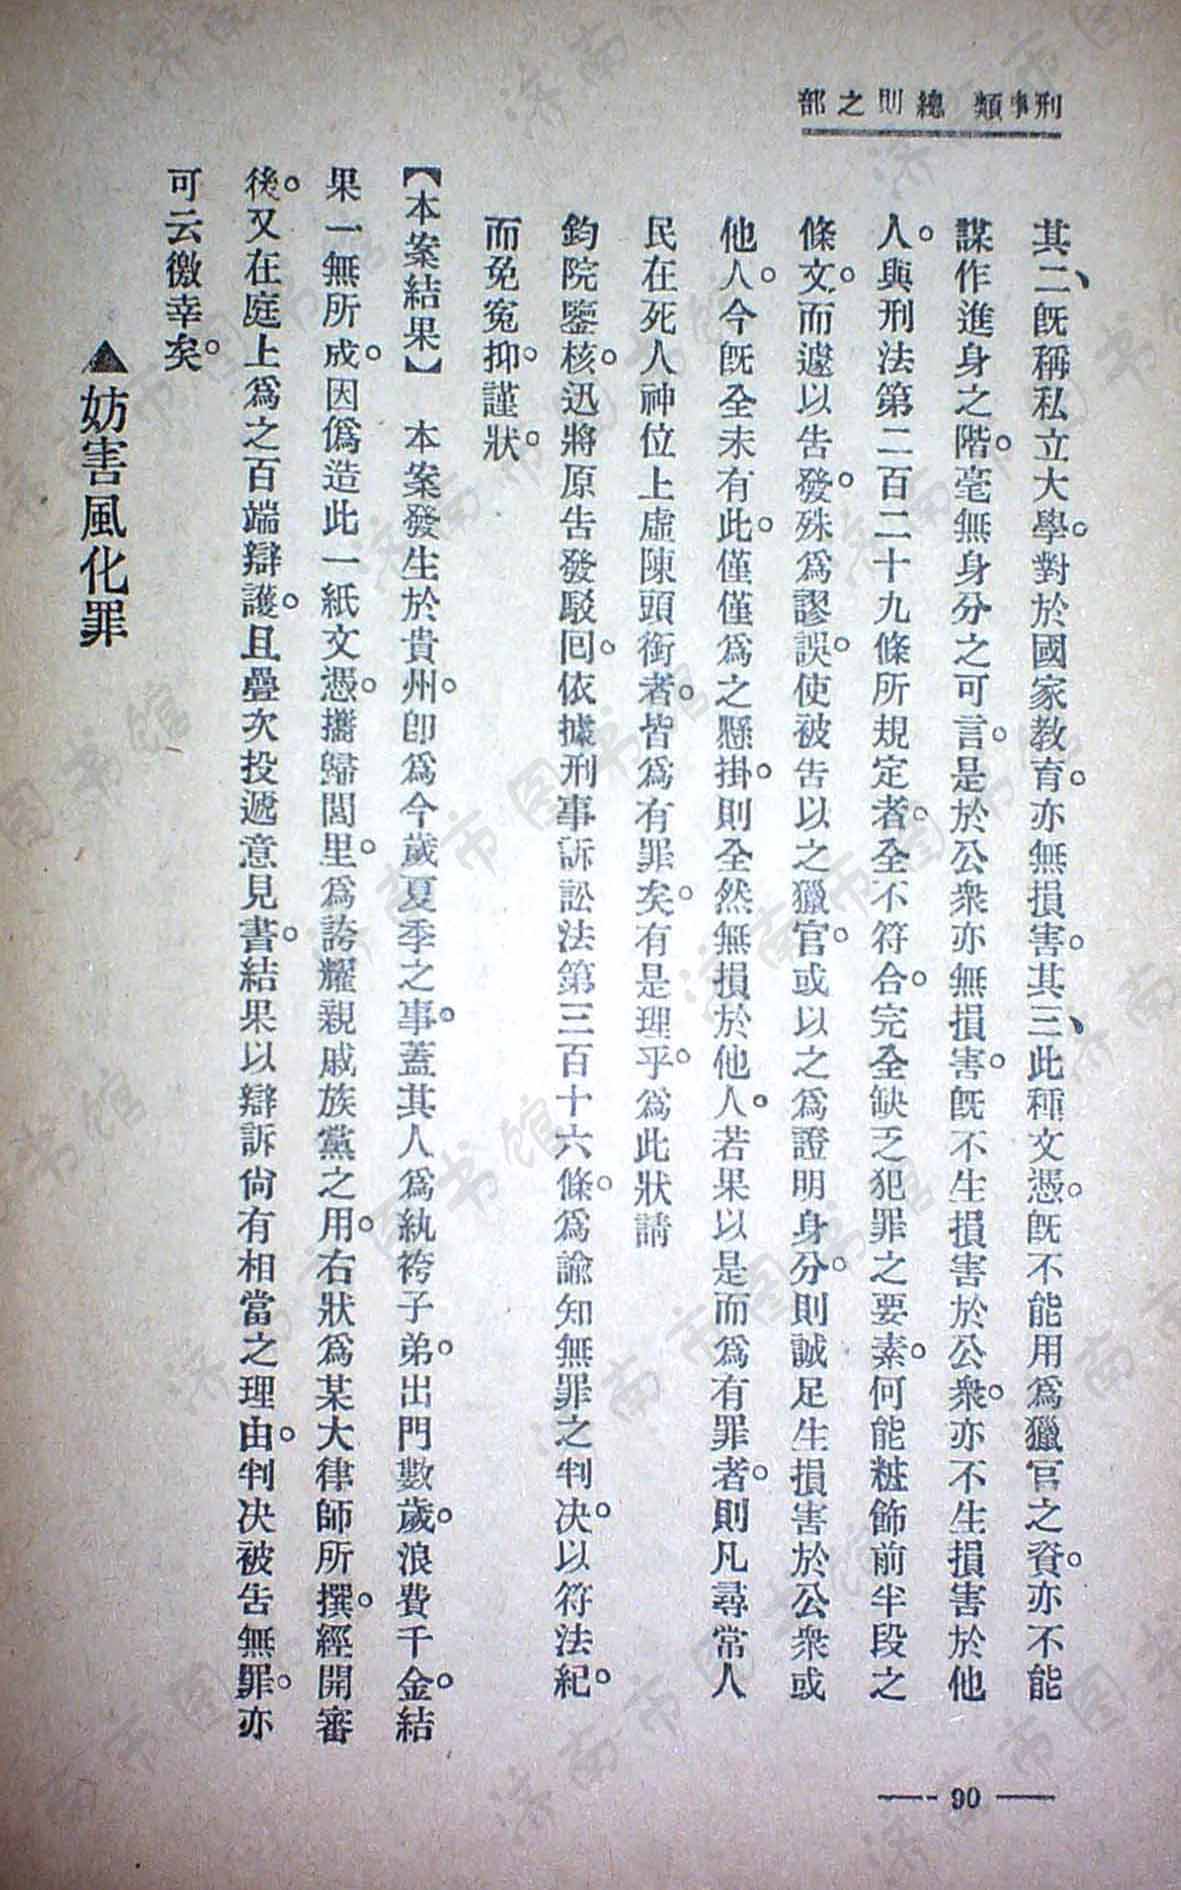 刑事類 總則之部
其二、既稱私立大學。對於國家教育。亦無損害。其三、此種文憑。既不能用爲獵官之資。亦不能
謀作進身之階。毫無身分之可言。是於公衆亦無損害。既不生損害於公衆。亦不生損害於他
人。與刑法第二百二十九條所規定者。全不符合。完全缺乏犯罪之要素。何能粧飾前半段之
條文。而遽以告發。殊爲謬誤。使被告以之獵官。或以之爲證明身分。則誠足生損害於公衆或
他人。今既全未有此。僅僅爲之懸掛。則全然無損於他人。若果以是而爲有罪者。則凡尋常人
民在死人神位上虛陳頭銜者。皆爲有罪矣。有是理乎。爲此狀請
鈞院鑒核。迅將原告發駁回。依據刑事訴訟法第三百十六條。爲諭知無罪之判决。以符法紀。
而免冤抑。謹狀。
【本案結果】 本案發生於貴州。卽爲今歲夏季之事。蓋其人爲紈袴子弟。出門數歲。浪費千金。結
果一無所成。因僞造此一紙文憑。攜歸閭里。爲誇耀親戚族黨之用。右狀爲某大律師所撰。經開審
後。又在庭上爲之百端辯護。且疊次投遞意見書。結果以辯訴尙有相當之理由。判决被告無罪。亦
可云徼幸矣。
▲妨害風化罪
— 90 —
济南市图书馆